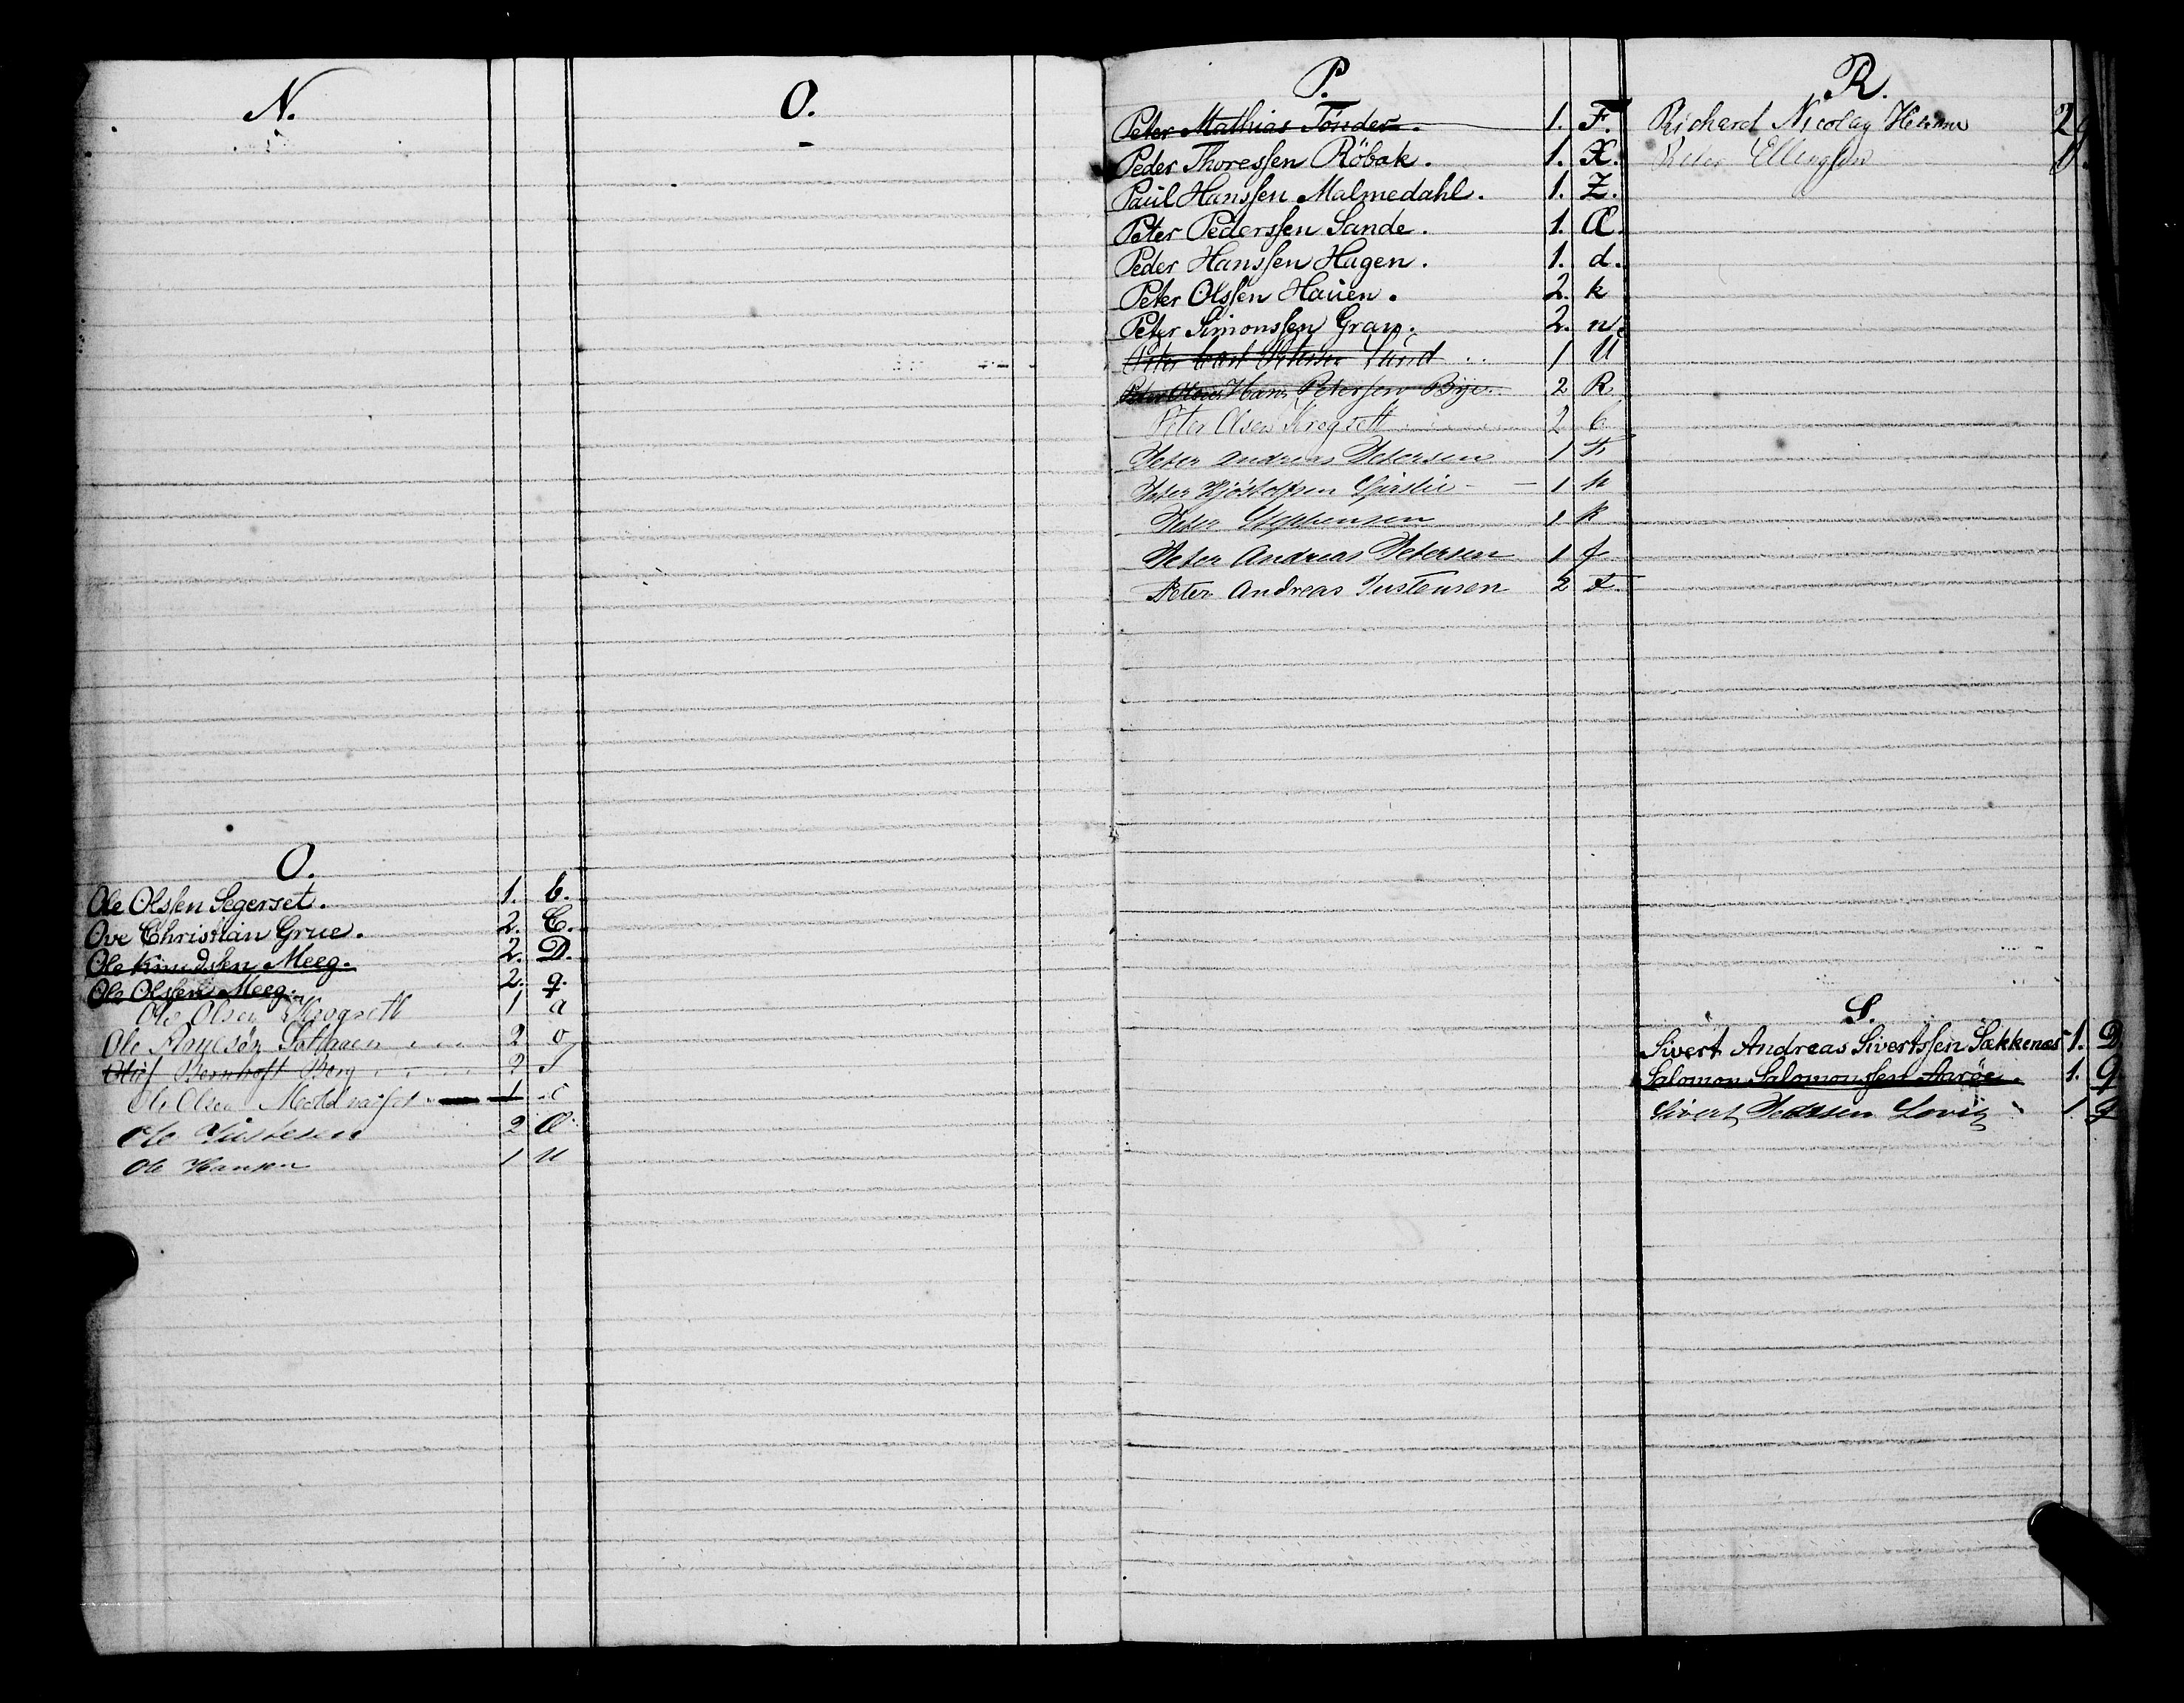 N.
O.
Ole Olsſen Segerset. 1. b.
Ove Christian Grue. 2. C.
Ole Knudsſen Meeg. 2. D.
Ole Olsſen Meeg. 2. q.
Ole Olsen Krogsett 1 a
Ole 2 o
Olaf Bernhoft Berg 2 S
Ole Olsen 1 c
Ole Justesen 2 Œ
Ole Hansen 1 U
O.
P.
Peter Mathias Tönder. 1. F.
Peder Thoresſen Röbak. 1. X.
Paul Hansſen Malmedahl. 1. Z.
Peter Pedersſen Sande. 1. Æ.
Peder Hansſen Hagen. 1. d.
Peter Olsſen Hauen. 2. k
Peter Simonsſen Gran. 2. n.
Peter Carl Petersen Lund 1 U
Hans Peterſen Bye. 2 R
Peter Olsen Krogsett 2 C
Peter Andreas Petersen 1 F
Peter 1 h
Peter Steffensen 1 k
Peter Andreas Petersen 1 f
Peter Andreas Justensen 2 F
R.
Richard Nicolay 2 q
Peter Ellingſen 1.
S.
Sivert Andreas Sivertsſen Sækkenes 1. D
Salomon Salomonsſen Aaröe. 1. Q
Sivert Pedersen 1 q